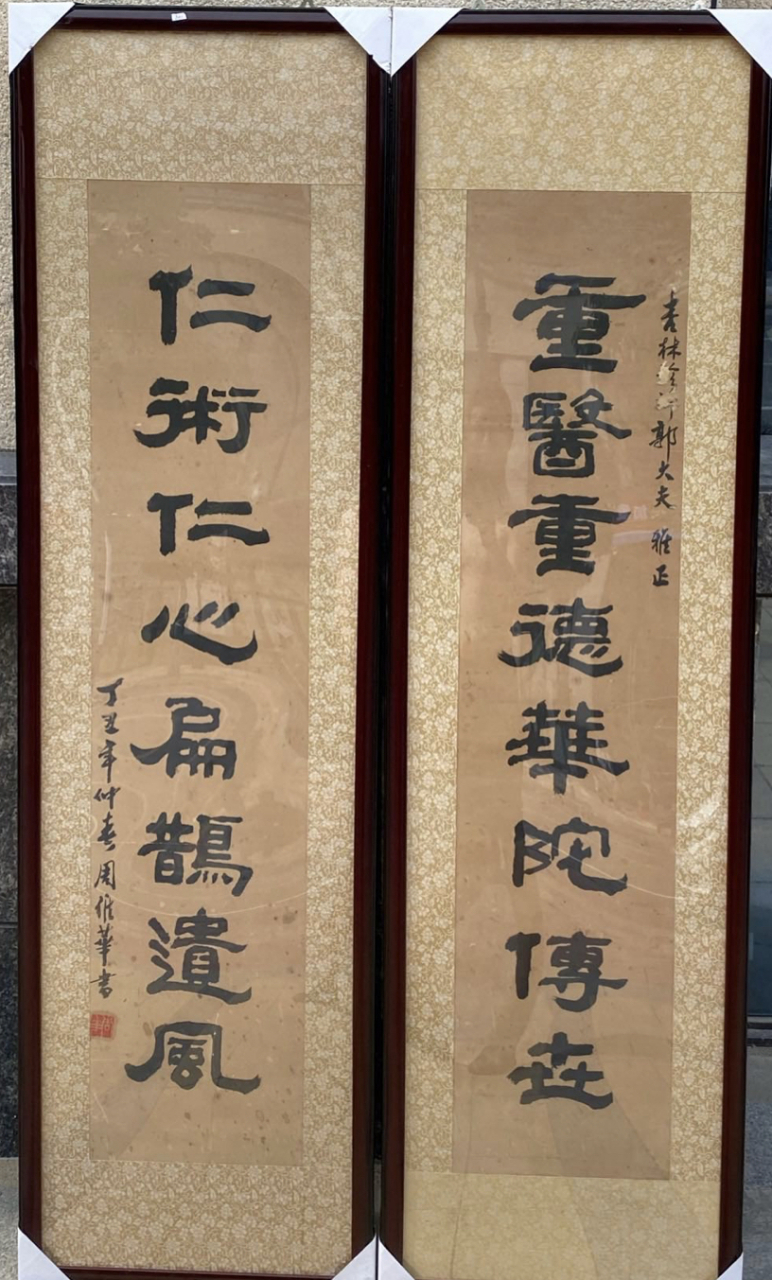 杏林
郭大夫 雅正
重醫重德華陀傳世
仁術仁心扁鵲遺風
丁丑年仲春周維華書